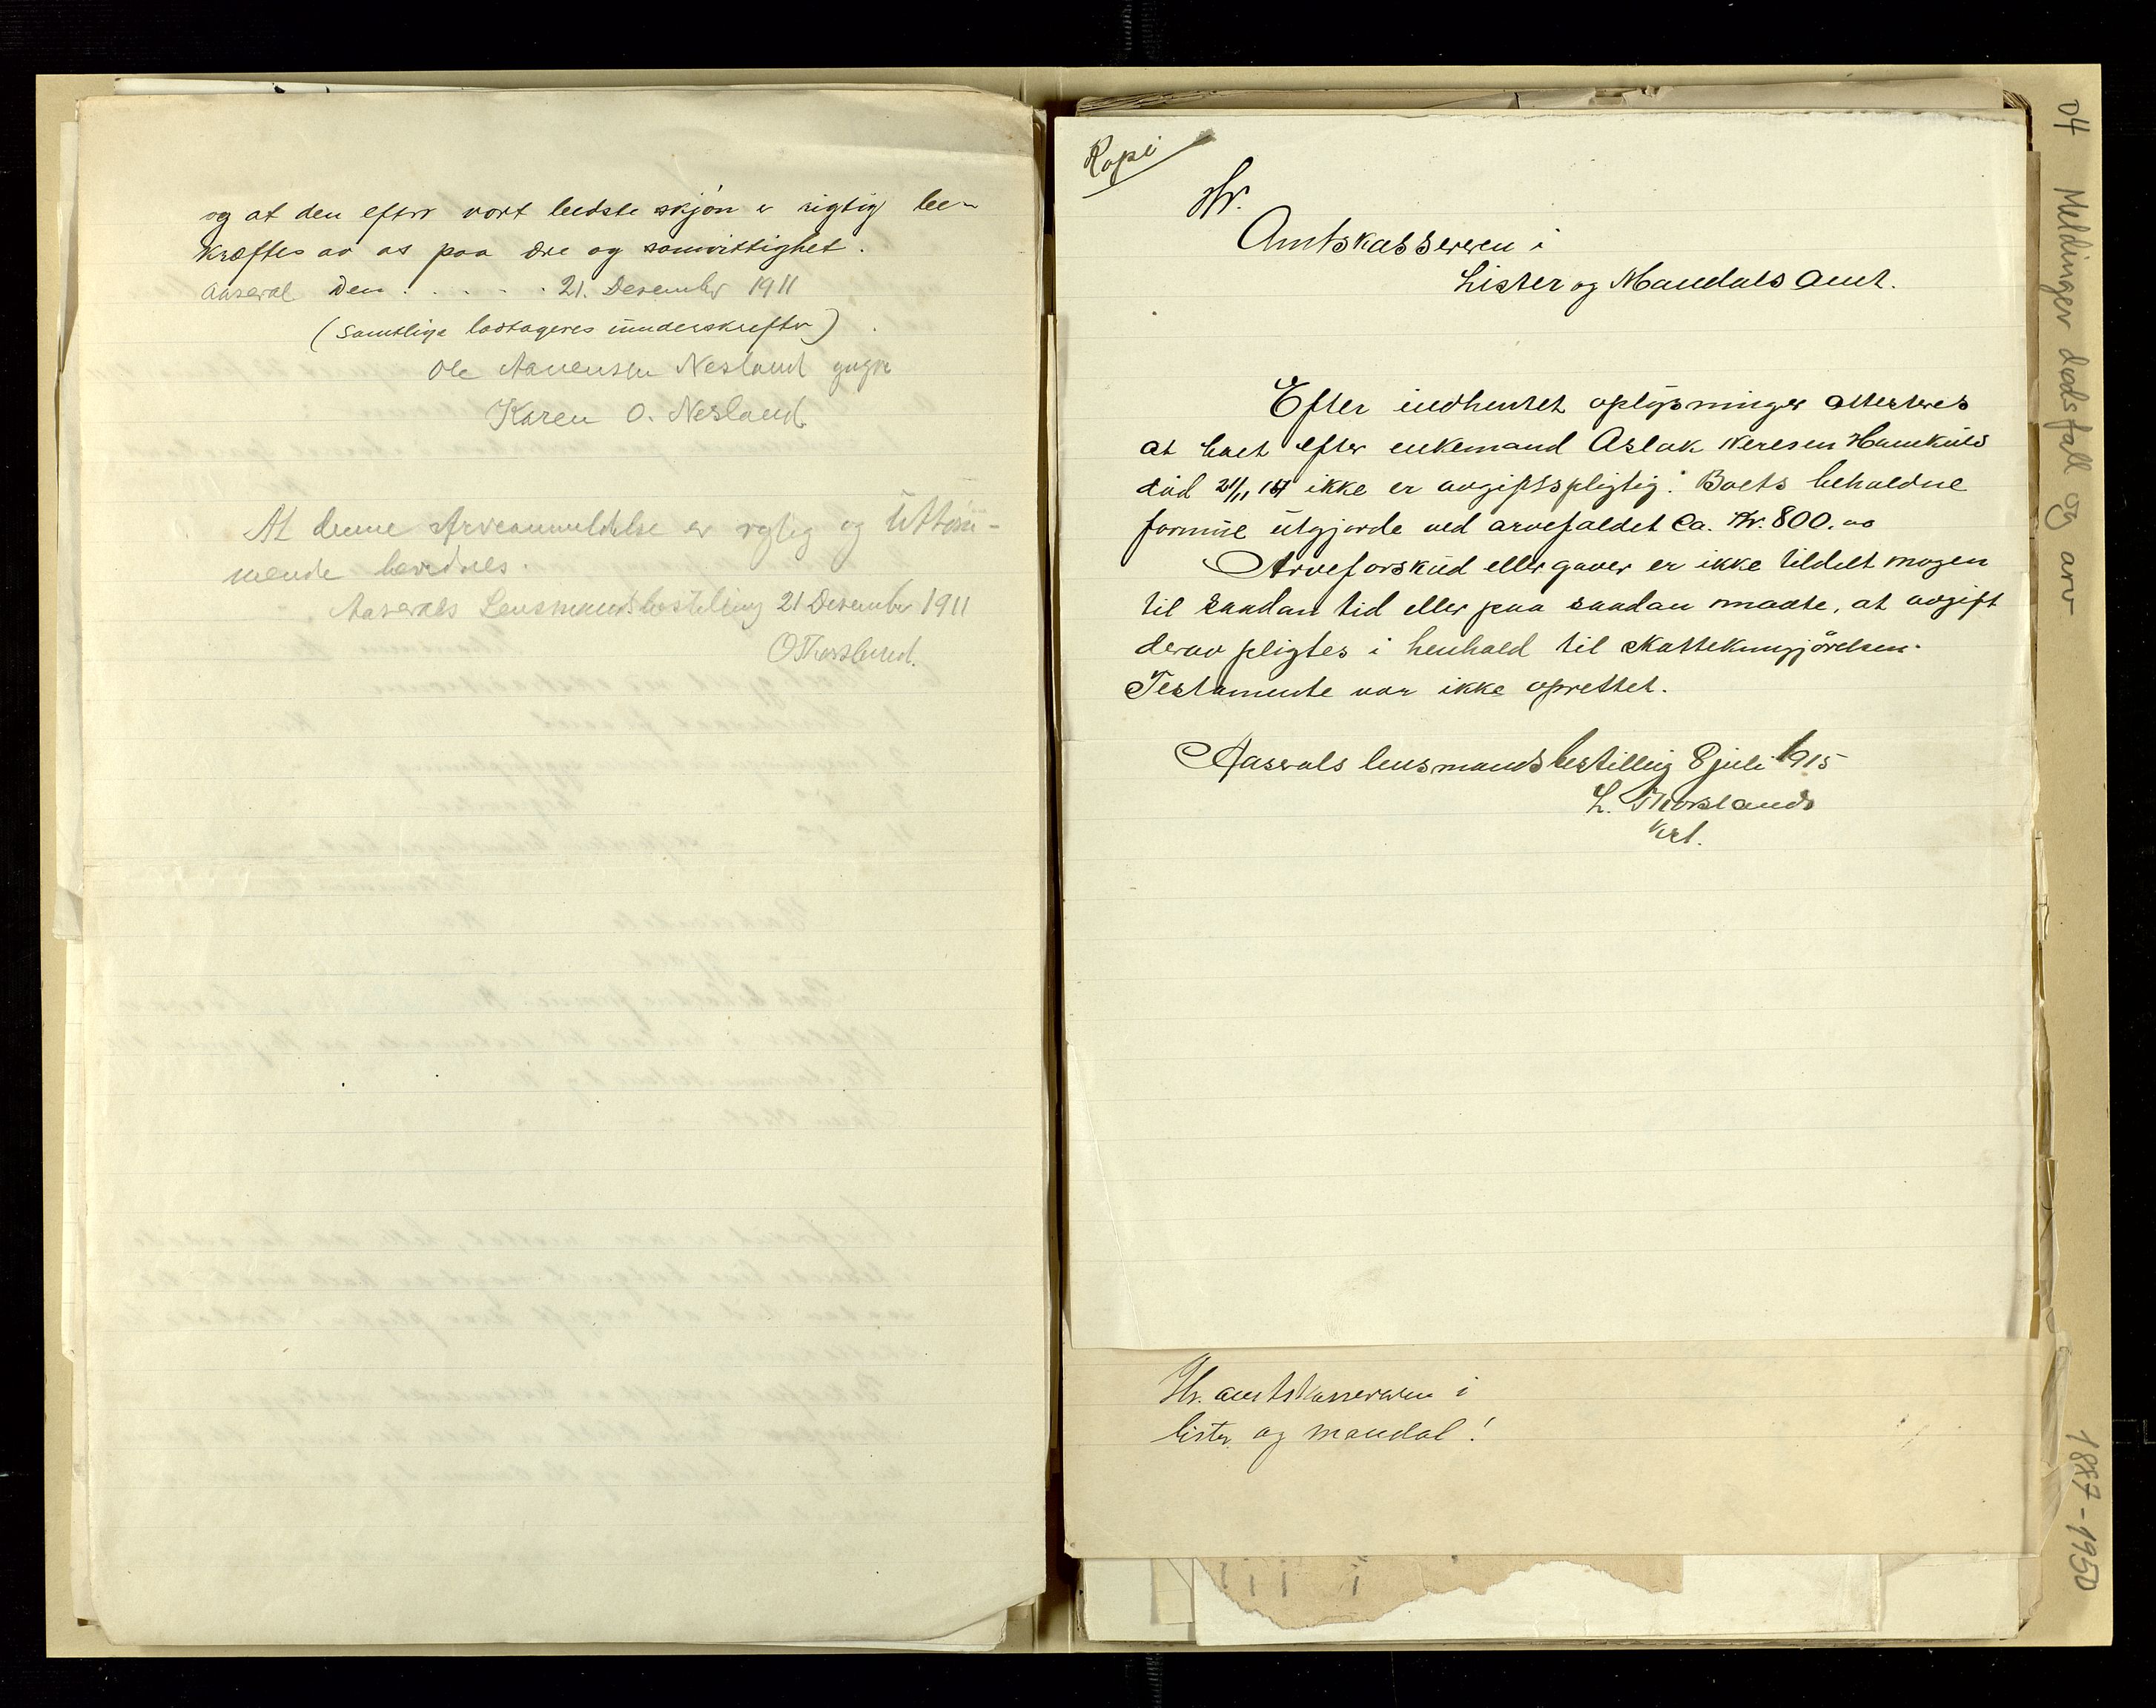 og at den efter vort bedste skjøn er rigtig be-
kræftes av os paa ære og samvittighet.
Aaseral den . . . . . 21. Desember 1911
(Samtlige lodtageres underskrefter)
Ole Aanensen Nesland
Karen O. Nesland
At denne Arveanmeldelse er rigtig og
bevidnes.
Aaserals Lensmandsbestilling 21 Desember 1911
O Thorsland.
Kopi
Hr.
Amtskassereren i
Lister og Mandals Amt.
Efter indhentet oplysninger attesteres
at boet efter enkemand Aslak
død 21/11 ikke er avgiftspligtig. Boets beholdne
formue utgjorde ved arvefaldet Ca. Kr. 800.00
Arveforskud eller gaver er ikke tildelt nogen
til saadan tid eller paa saadan maate, at avgift
derav pligtes i henhold til skattekungjørelsen.
Testamente var ikke oprettet.
Aaserals lensmandsbestilling 8 juli 1915
L. Thorsland
Hr. amtskassereren i
Lister og Mandal!
04 Meldinger dødsfall og arv 1857-1950